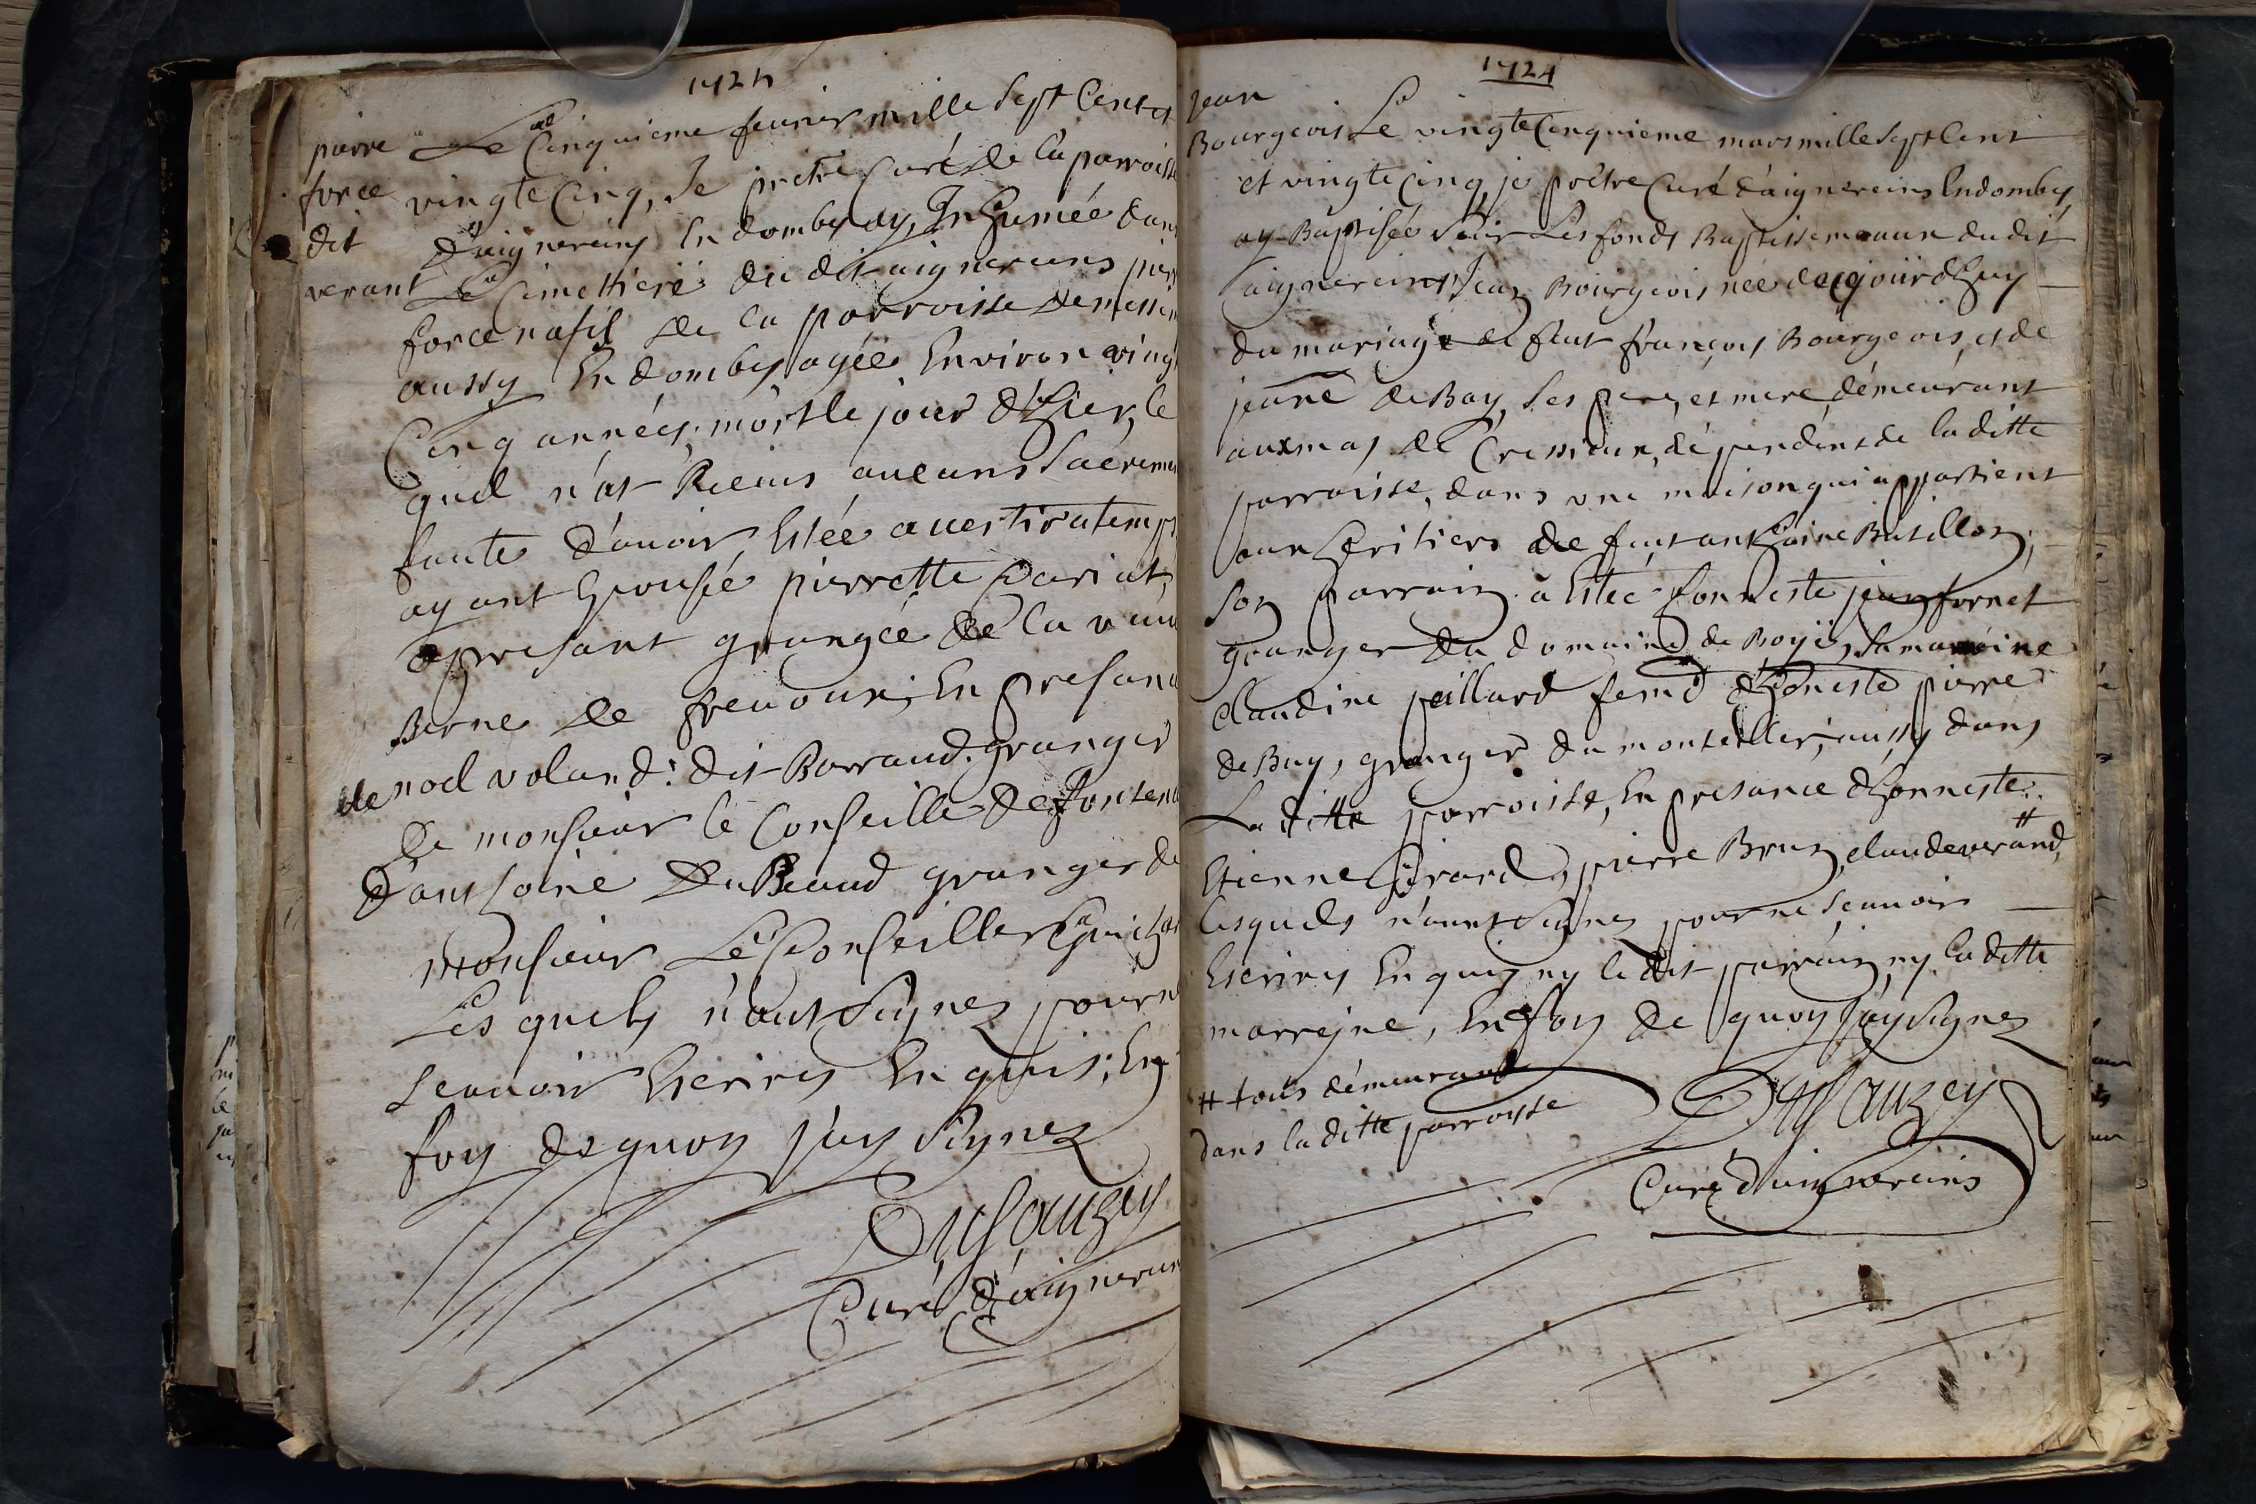 172
pierre
force
dit
verant
Le Cinquieme feurier mille sept Cent et
vingte Cinq, Je pretre Curé de la parroisse
d'aignereins En dombes ay, Inhumée dans
Le Cimettiere du dit aignereins pierre
force natif de la parroisse de
aussy En dombes agée Environ vingt
Cinq années, mort le jour d'hier, le
quel n'at Receus aucuns Sacremen
faute d'auoir Estée auerti atemps
ayant Epousée pierrette
apresant grangée de la
Berne de En presance
de noel voland: dit Barraud. granger
de monsieur le Conseille de
d'anthoine Du granger de
Monsieur Le Conseiller
Les quels n'ont Signez pour ne
scauoir Escrires En quis, En
foy de quoy j'ay Signez
DuSauzey
Curé d'aignereins
1724
jean
Bourgeois
Le vingte Cinquieme mars mille sept Cent
et vingte Cinq, je prêtre Curé d'aignereins En dombes,
ay Baptisée Sur Les fonds Baptissemeaux du dit
aignereins, Jean Bourgeois née daujourdhuy
du mariage de feut françois Bourgeois, et de
jeane deBay, Ses pere, et mere, démeurant
aux mas de Cressieux, dépendent de la ditte
parroisse, dans une maison qui appartient
aux heritiers de feut anthoine Batillon,
Son parrain a Estée honneste jean fornet
granger du domaine de, Sa mareine
claudine paillard feme d'honeste pierre
deBay, granger du aussy dans
La ditte parroisse, En presance d'honneste
Etienne Girard, pierre Brun, claude verand, #
lesquels n'onnt Signez pour ne Scauoir
Escrires En quis ny le dit parrain, ny la ditte
marrejne, En foy de quoy j'ay Signez
# tous démeurant
dans la ditte parroisse
DuSauzey
Curé d'aignereins